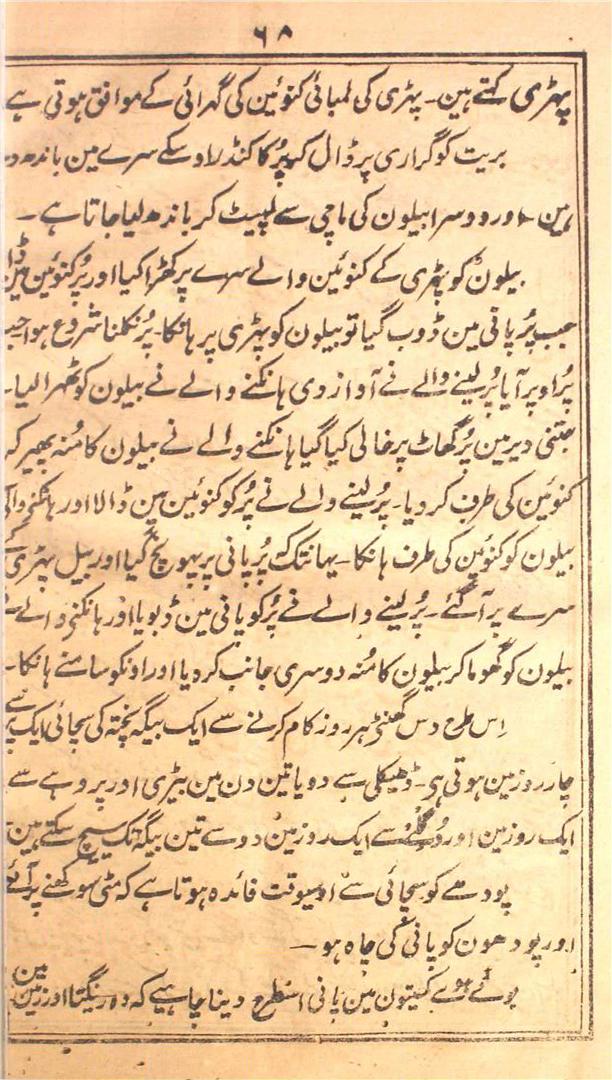 ۶۸
پہڑی کہتے ہین۔ پہڑی کی لمبائی کنوئین کی گہرائی کے موافق ہوتی ہے
بریت کو گراری پر ڈال کر پُر کا کنڈلا وسکے سرے مین باندھ د
ہین۔ اور دوسرا بیلون کی ماچی سے لپیٹ کر باندھ لیا جاتا ہے۔
بیلون کو پہڑی کے کنوئین والے سرے پر کھڑا کیا اور پُر کنوئین مین ڈا
جب پُر پانی مین ڈوب گیا تو بیلون کو پہڑی پر ہانکا۔ پُر نکلنا شروع ہوا جب
پُر اوپر آیا پُر لینے والے نے آواز دی ہانکنے والے نے بیلون کو ٹھہرا لیا۔
جتنی دیر مین پُر گھاٹ پر خالی کیا گیا ہانکنے والے نے بیلون کا مُنہ پھیر کر
کنوئین کی طرف کر دیا۔ پُر لینے والے نے پُر کو کنوئین مین ڈالا اور ہانکنے والے
بیلون کو کنوئین کی طرف ہانکا۔ یہانتک پُر پانی پر پہونچ گیا اور بیل پہڑی کے
سرے پر آ گئے۔ پُر لینے والے نے پُر کو پانی مین ڈبویا اور ہانکنے والے نے
بیلون کو گھوما کر بیلون کا مُنہ دوسری جانب کر دیا اور اونکو سامنے ہانکا۔
اِس طرح دس گھنٹہ ہر روز کام کرنے سے ایک بیگہ پختہ کی سچائی ایک پُر سے
چار روز مین ہوتی ہی۔ ڈھیکلی سے دو یا تین دن مین بیڑی اور پروہے سے
ایک روز مین اور سے ایک روز مین دو سے تین بیگہ تک سیچ سکتے ہین
پودھے کو سچائی سے اوسیوقت فائدہ ہوتا ہے کہ مٹی سوکھنے پر آئے
اور پودھون کو پانی کی چاہ ہو۔
بوئے ہوے کھیتون مین پانی اسطرح دینا چاہیے کہ وہ رینگتا اور زمین مین